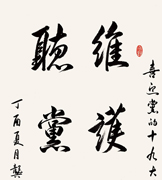 喜迎党的十九大
維護
聽黨
丁酉夏月龔